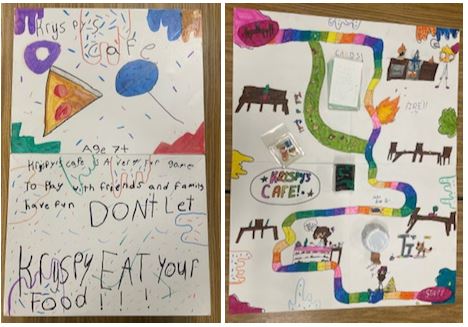 Kryspy's
Cafe
Age 7+
Krispy's cafe A very fun game
To Play with friends and family
have fun DONt Let
Krispy EAT your
Food!!!!
CARDS!
FIRE!!
KRISPY'S
CAFE!
START